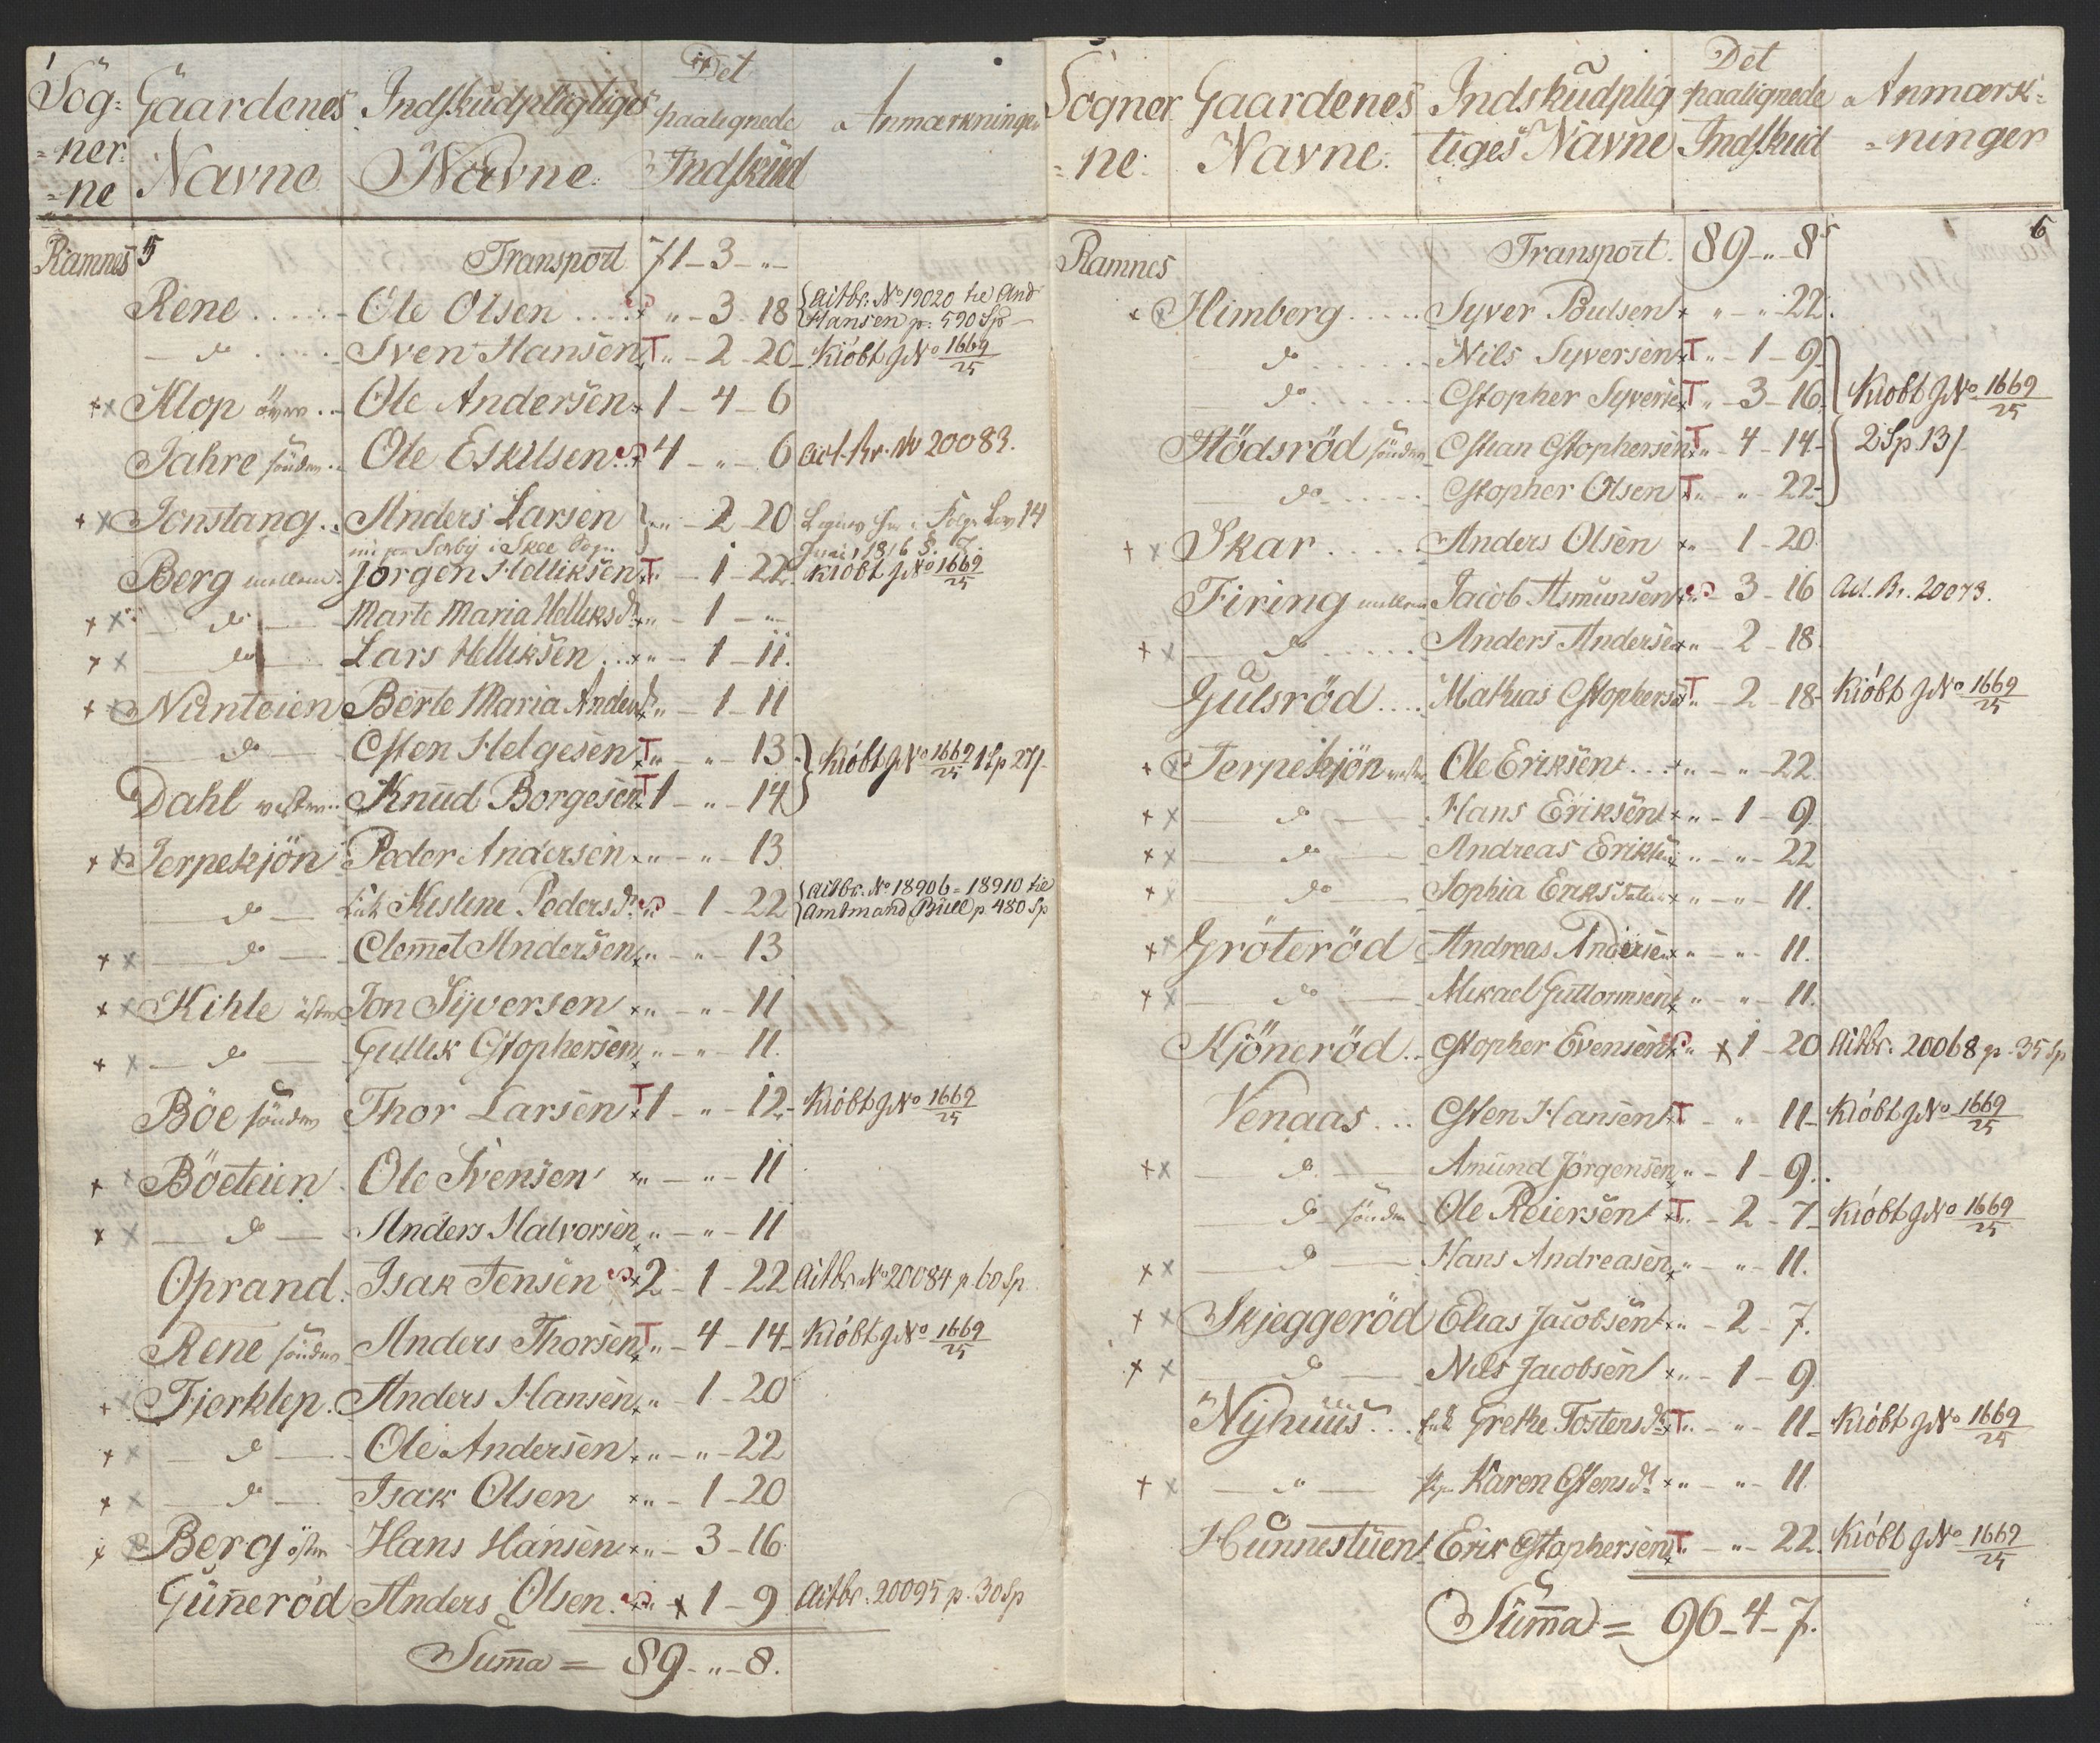 Sög= Gaardenes Indskudpligtiges Det paalignede Anmærkninger
=ner=
=ne Navne Navne Indskud
Ramnes 5 Transport 71 - 3 - "
Rene ..... Ole Olsen .... " - 3 - 18 Actbr. No 19020 til And Hansen p. 590 Sp
do ..... Sven Hansen T " - 2 - 20 Kiöbt J No 1669/25
+ x Klop övre .. Ole Andersen 1 - 4 - 6
Jahre sönder .. Ole Eskilsen .. 4 - " - 6 Act. Br. No 20083.
+ x Jonstang .. Anders Larsen " - 2 - 20 Folge Lov 14
Sorby i Skee Sogn Juni 1816 §. 7.
Berg mellem Jörgen Helliksen T " - 1 - 22 Kiöbt J No 1669/25
+ x do Marte Maria Helliksd. " - 1 - "
+ x do Lars Helliksen ... " - 1 - 11.
+ x Nunteien Berte Maria Andersd. " - 1 - 11
do Csten Helgesen T " - " - 13 } Kiöbt J No 1669/25 1 Sp 27 s
Dahl vestre .. Knud Borgesen T 1 - " - 14
+ x Jerpekjön Peder Andersen " - " - 13
do Kistine Pedersd. " - 1 - 22 Actbr. No 18906 = 18910 til Amtmand Bull p 480 Sp
+ x do Clemet Andersen " - " - 13
+ x Kihle öster Jon Syversen " - " - 11
+ x do Gullik Cstophersen " - " - 11.
Böe sönder Thor Larsen T 1 - " - 12 Kiöbt J No 1669/25
+ x Böeteien Ole Svensen " - " - 11
+ x do Anders Halvorsen " - " - 11
Oprand .. Isak Jensen 2 - 1 - 22 Actbr. No 20084 p 60 Sp
Rene sönder Anders Thorsen T " - 4 - 14 Kiöbt J No 1669/25
+ x Fjerklep. Anders Hansen " 1 - 20
+ x do Ole Andersen " - " - 22
+ x do Isak Olsen " - 1 - 20
+ x Berg östre Hans Hansen " - 3 - 16
Guneröd Anders Olsen. x 1 - 9 Actbr. 20095 p. 30 Sp
Suma = 89 - " - 8.
Sogner Gaardenes Indskudplig Det paalignede Anmærk=
=ne. Navne. tiges Navne Indskud =ninger
6
Ramnes Transport. 89 - " - 8
+ x Himberg ..... Syver Bulsen " - " - 22.
do ...... Nils Syversen T " - 1 - 9
do ...... Cstopher Syversen T " - 3 - 16 } Kiöbt J No 1669/25
Stödsröd sönder Cstian Cstophersen T " 4 - 14 2 Sp 13 s
do ..... Cstopher Olsen T " - " - 22
+ x Skar ..... Anders Olsen " 1 - 20
Firing mellem Jacob Asmunsen " - 3 - 16 Act. Br. 20073.
+ x do ..... Anders Andersen " - 2 - 18
Gulsröd .... Mathias Cstophersen T " - 2 - 18 Kiöbt J No 1669/25
+ x Jerpekjön vestre Ole Eriksen ... " - " - 22
+ x do Hans Eriksen " - 1 - 9
+ x do Andreas Eriksen " - " - 22
+ x do Sophia Eriks " - " - 11.
+ x Gröteröd Andreas Andersen " - " - 11.
+ x do Mikael Guttormsen " - " - 11.
Kjöneröd .. Cstopher Evensen " x 1 - 20 Actbr. 20068 p. 35 Sp
Venaas ... Csten Hansen T - " 11 Kiöbt J No 1669/25
+ x do Amund Jörgensen " - 1 - 9..
do sönder Ole Reiersen T " - 2 - 7 Kiöbt J No 1669/25
+ x do Hans Andreasen " - " - 11.
+ x Skjeggeröd Elias Jacobsen " - 2 - 7.
+ x do Nils Jacobsen " - 1 - 9
Nyhuus ... Grethe Tostensd. T " - " - 11 Kiöbt J No 1669/25
+ x " Karen Cstensd. " - " - 11
Hunnestuen Erik Cstophersen T " - " - 22. Kiöbt J No 1669/25
Suma = 96 - 4 - 7.